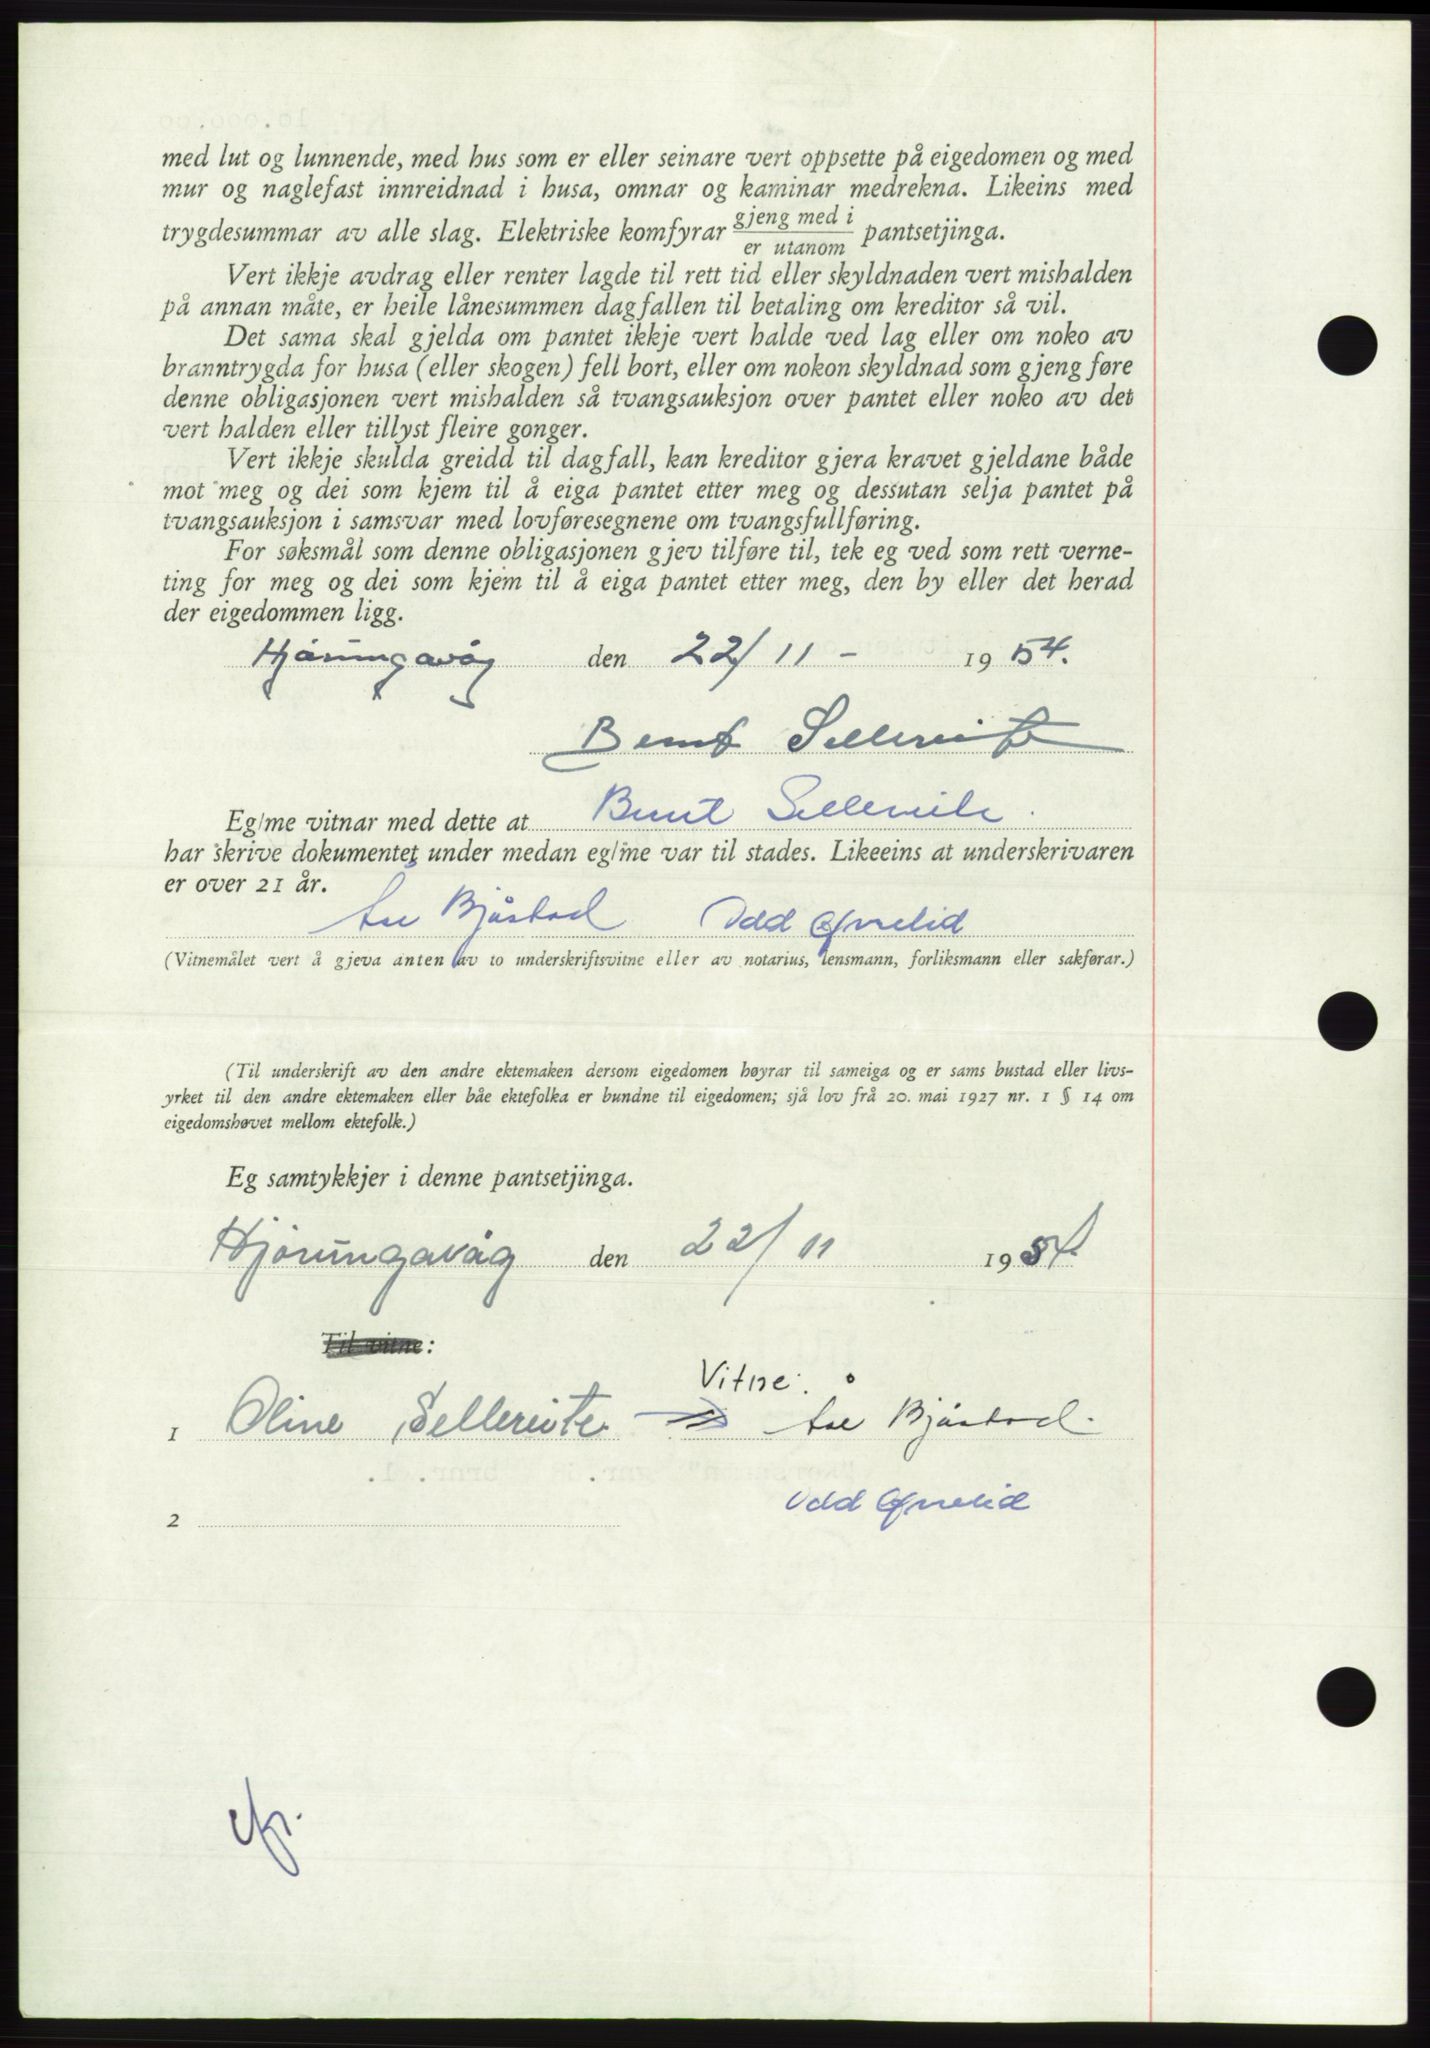 med lut og lunnende, med hus som er eller seinare vert oppsette på eigedomen og med
mur og naglefast innreidnad i husa, omnar og kaminar medrekna. Likeins med
trygdesummar av alle slag. Elektriske komfyrar gjeng med i / er utanom pantsetjinga.
Vert ikkje avdrag eller renter lagde til rett tid eller skyldnaden vert mishalden
på annan måte, er heile lånesummen dagfallen til betaling om kreditor så vil.
Det sama skal gjelda om pantet ikkje vert halde ved lag eller om noko av
branntrygda for husa (eller skogen) fell bort, eller om nokon skyldnad som gjeng føre
denne obligasjonen vert mishalden så tvangsauksjon over pantet eller noko av det
vert halden eller tillyst fleire gonger.
Vert ikkje skulda greidd til dagfall, kan kreditor gjera kravet gjeldane både
mot meg og dei som kjem til å eiga pantet etter meg og dessutan selja pantet på
tvangsauksjon i samsvar med lovføresegnene om tvangsfullføring.
For søksmål som denne obligasjonen gjev tilføre til, tek eg ved som rett verne-
ting for meg og dei som kjem til å eiga pantet etter meg, den by eller det herad
der eigedommen ligg.
Hjørungavåg den 22/11 - 1954.
Bernt Sellereite
Eg/me vitnar med dette at Bernt Sellereite.
har skrive dokumentet under medan eg/me var til stades. Likeeins at underskrivaren
er over 21 år.
Åse Bjåstad Odd
(Vitnemålet vert å gjeva anten av to underskriftsvitne eller av notarius, lensmann, forliksmann eller sakførar.)
(Til underskrift av den andre ektemaken dersom eigedomen høyrar til sameiga og er sams bustad eller livs-
yrket til den andre ektemaken eller båe ektefolka er bundne til eigedomen; sjå lov frå 20. mai 1927 nr. 1 § 14 om
eigedomshøvet mellom ektefolk.)
Eg samtykkjer i denne pantsetjinga.
Hjørungavåg den 22/11 1954.
Til vitne:
Vitne:
1 Oline Sellereite Åse Bjåstad.
Odd
2